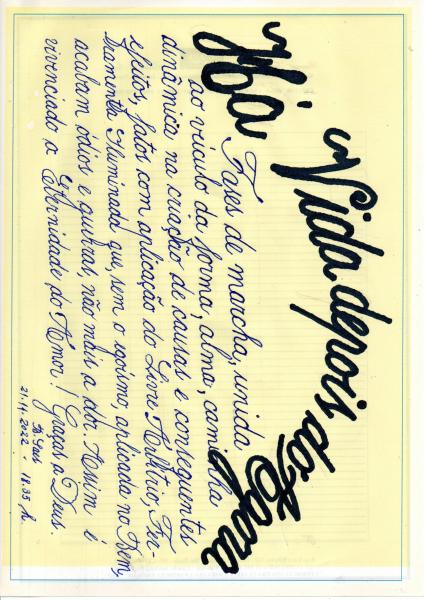 Há Vida depois do Agora
Fases de marcha, unida
ao veículo da forma, alma, caminha
dinâmica na criação de causas e consequentes
efeitos, fatos com aplicação do Livre Arbítrio, Fer-
ramenta Iluminada que, sem o egoísmo, aplicada no Bem,
acabam ódios e guerras, não mais a dor. Assim é
vivenciado a Eternidade do Amor! Graças a Deus.
21.14.2022 - 18.35 h